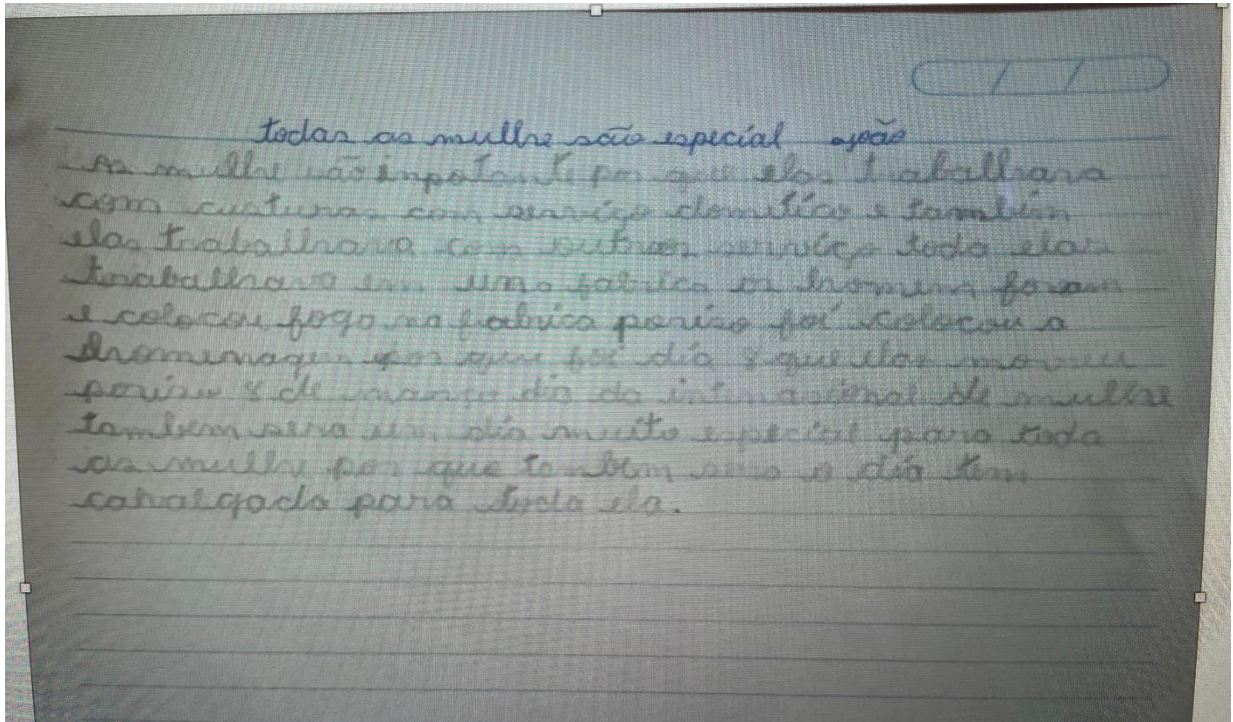 todas as mulhe são especial
As mulhe são inpotante por que elas trabalhara
com custuras com serviço domiticos e também
elas trabalhava com outros serviço todo elas
trabalhava em uma fabrica os homem foram
e colocou fogo na fabrica poriso foi colocou a
homenagen por que foi dia 8 que elas morreu
poriso 8 de março dia da internacional de mulhe
tambem sera um dia muito especial para toda
as mulhe por que tambem sera o dia tem
cavalgada para toda ela.